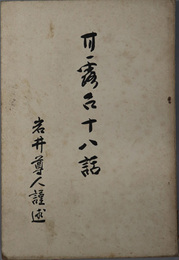 甘露台十八話
岩井尊人謹述